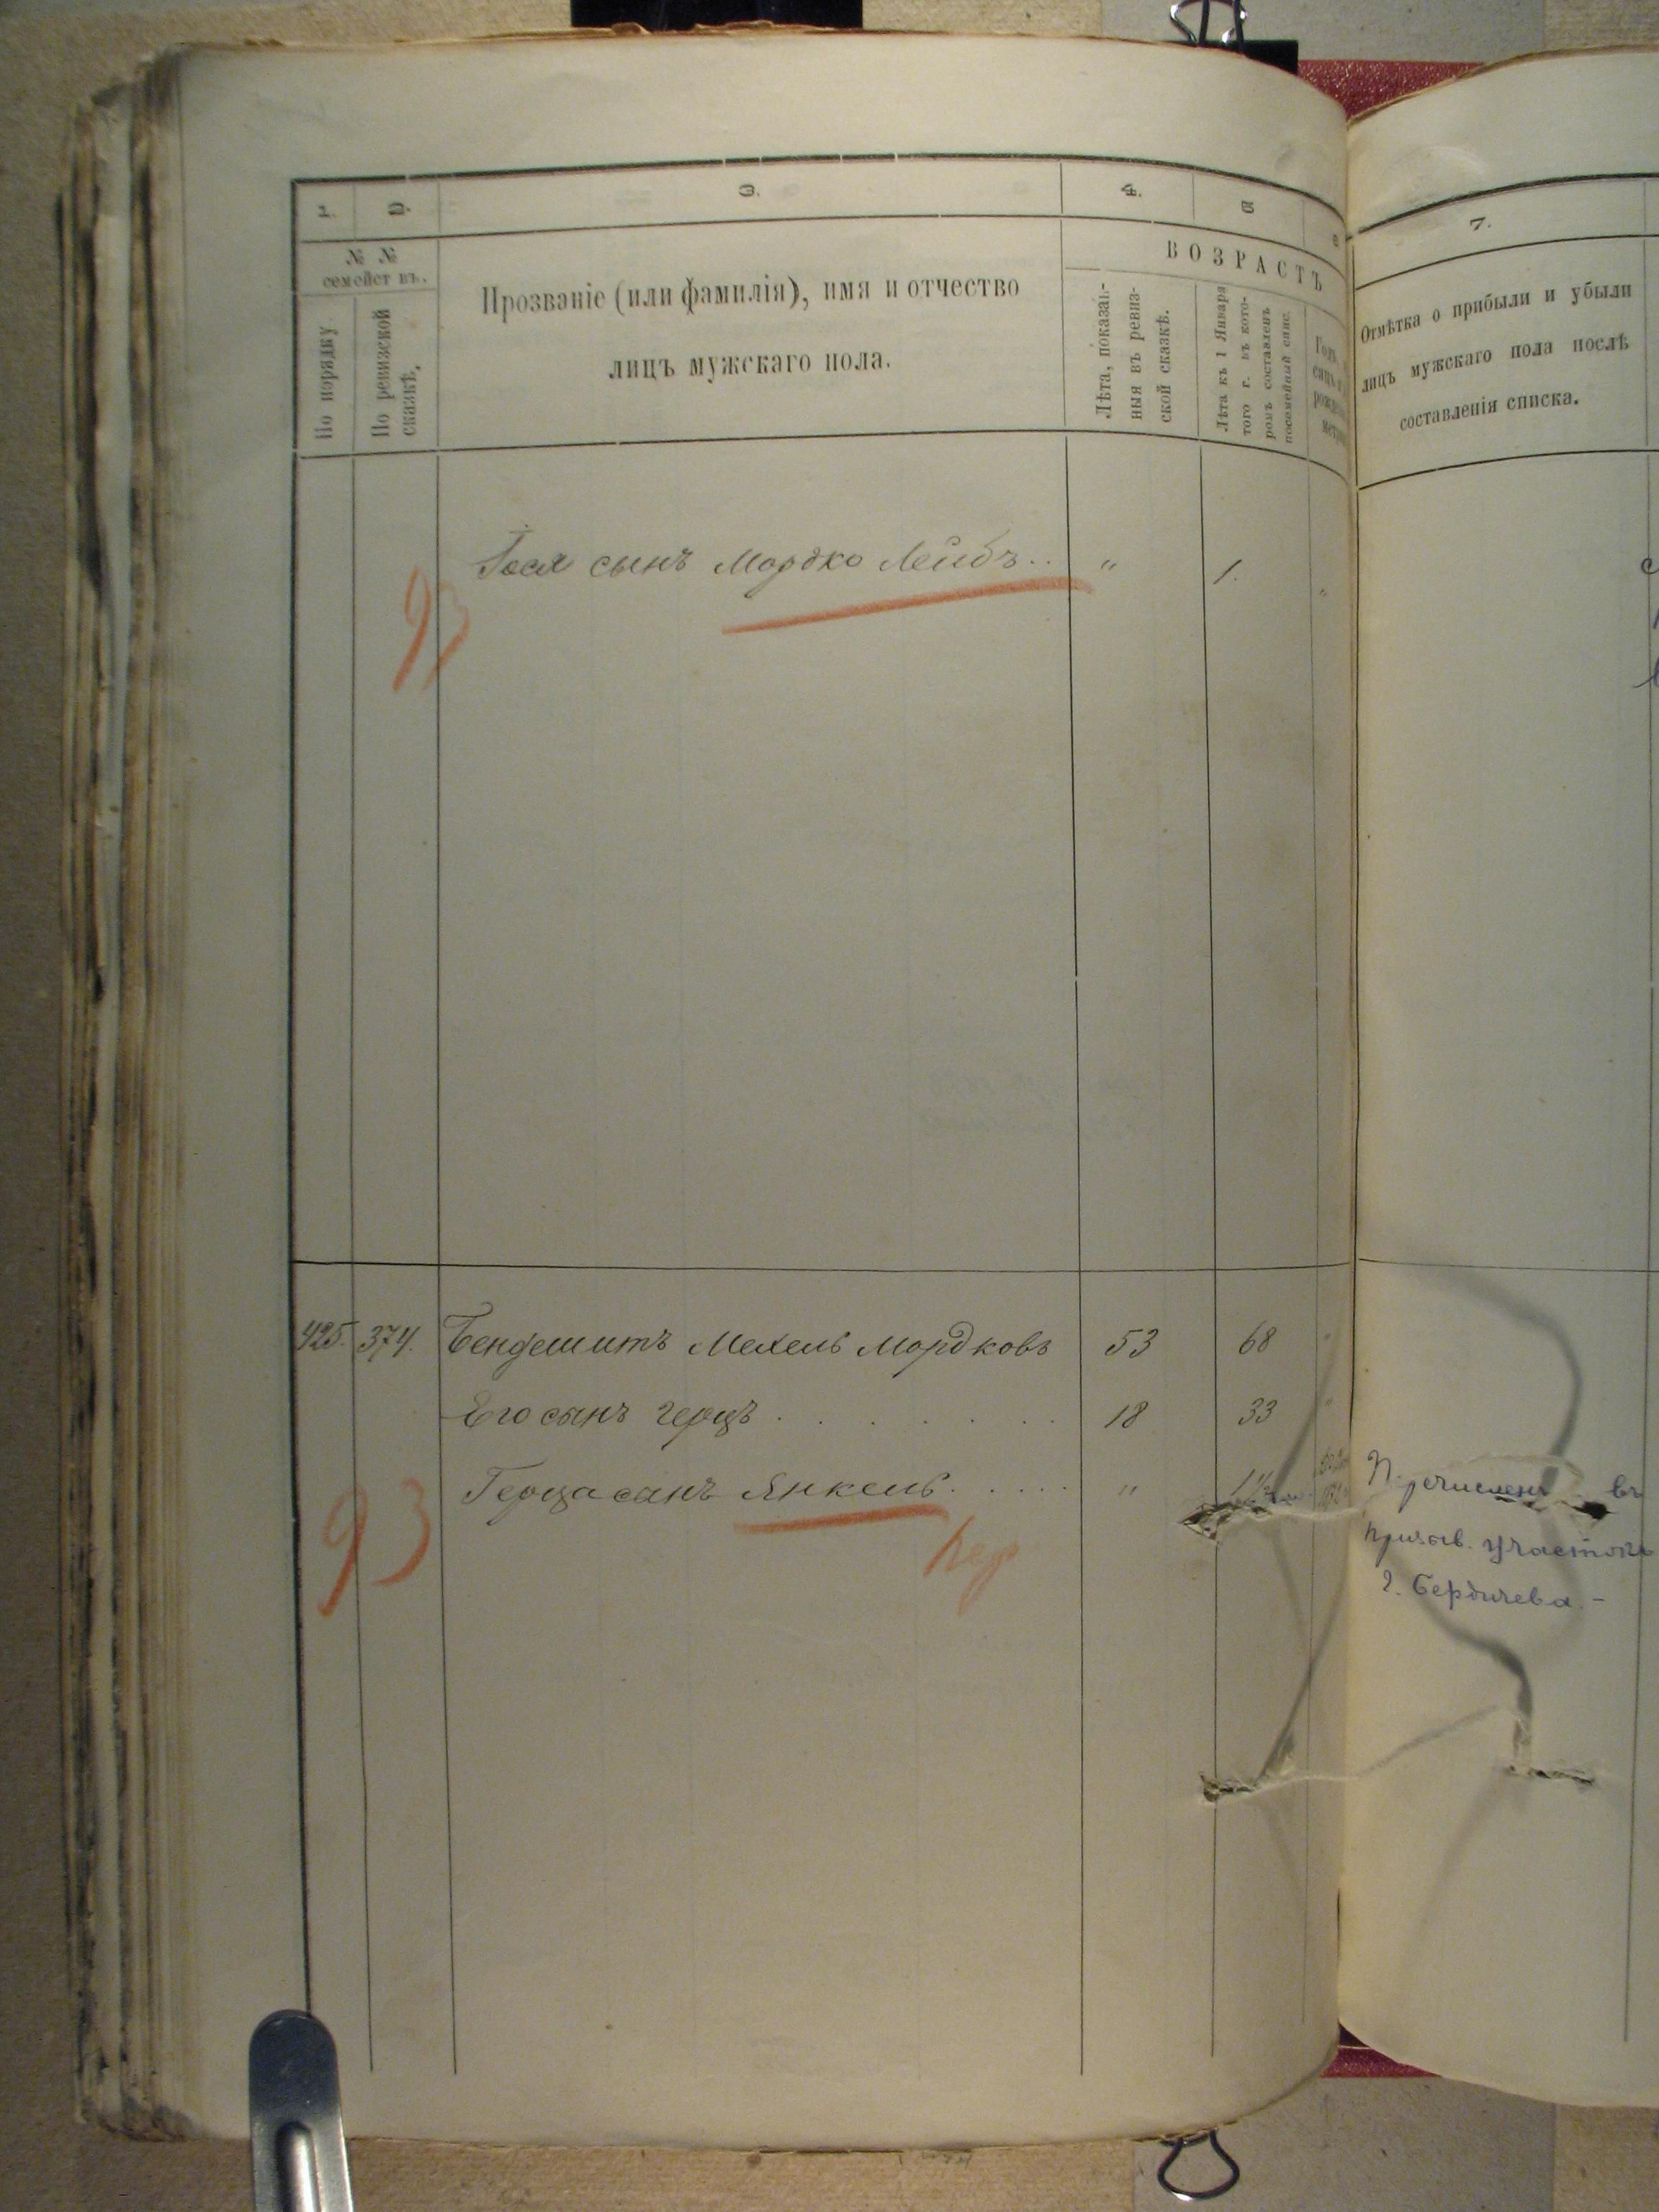 1. 2. 3. 4. 5 6 7.
№ №
семействъ.
По порядку
По ревизской
сказкѣ.
Прозваніе (или фамилія), имя и отчество
лицъ мужскаго пола.
ВОЗРАСТЪ
Лѣта, показан-
ныя въ ревиз-
ской сказкѣ.
Лѣта къ 1 Января
того г. въ кото-
ромъ составленъ
посемейный спис.
Отмѣтка о прибыли и убыли
лицъ мужскаго пола послѣ
составленія списка.
Іося сынъ Мордко Лейбъ.. " 1. "
93
425. 374. Бендешитъ Мехель Мордковъ 53 68 "
Его сынъ Герцъ . . . . . . . 18 33 "
Герца сынъ Янкель . . . . . "
93
пер
Перечисленъ въ
призыв. участокъ
г. Бердичева. -